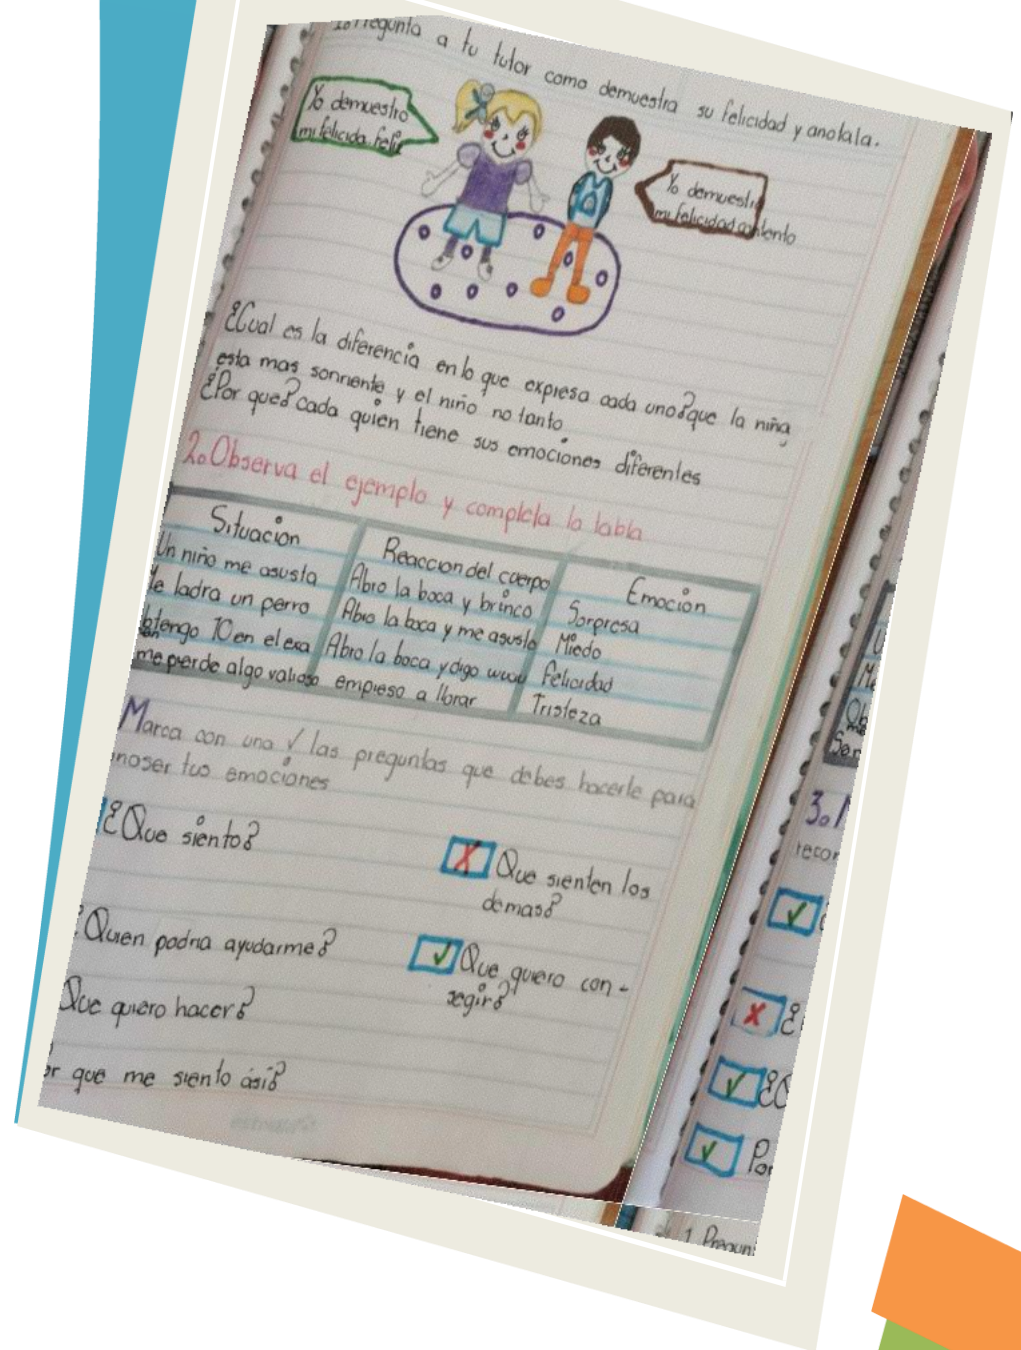 1. Pregunta a tu tutor como demuestra su felicidad y anotala.
Yo demuestro
mi felicida feliz
Yo demuestro
mi felicidad contento
¿Cual es la diferencia en lo que expresa cada uno? que la niña
esta mas sonriente y el niño no tanto
¿Por que? cada quien tiene sus emociones diferentes
2. Observa el ejemplo y completa la tabla
Situacion Reaccion del cuerpo Emocion
Un niño me asusta Abro la boca y brinco Sorpresa
Me ladra un perro Abro la boca y me asusto Miedo
obtengo 10 en el exa Abro la boca y digo wuau felicidad
me pierde algo valioso empieso a llorar Tristeza
Marca con una ✓ las preguntas que debes hacerte para
noser tus emociones
¿Que siento?
X Que sienten los
demas?
¿Quien podria ayudarme?
✓ Que quiero con-
segir?
Que quiero hacer?
or que me siento ási?
Ob
Ser
3.
recor
✓
X ¿
✓ ¿Q
✓ Por
1 Pregun